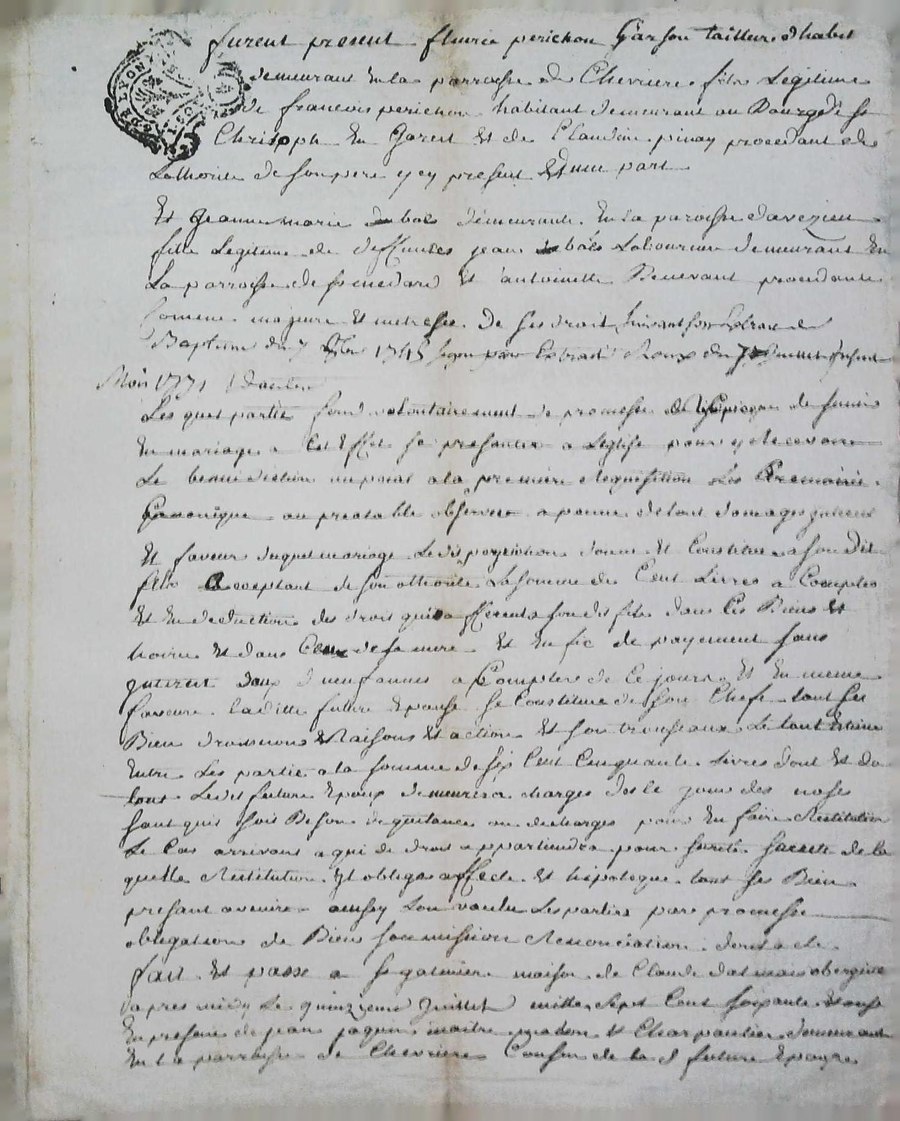 furent present fleurie perichon Garson tailleur dhabit
demeurant en la parroisse de Chevriere fils Legitime
de francois perichon habitant demeurant au Bourg de st
Christoph En Jarest Et de Claudine pinay procedant de
Lathorite de son pere y cy present d'une part
Et Jeanne marie bals demeurante En la paroisse davezieu
fille Legitime de deffuntes jean bals Laboureur demeurant En
La parroisse de st medard Et antoinette Benevant procedante
Comme majeure Et metresse De ses droit suivant son Extrait de
Bapteme du 7 1745 signé par Extrait Roux du
Mois 1771
Les quel partie sond volontairement de promesse de de sunir
En mariage a Cet Effet se presenter a Leglise pour y Recevoire
Le benediction nuptial a la premiere Requisition Les Ceremoine
Canonique au prealable observer a peine de tout domages
Et faveur duquel mariage Ledit perichon donne Et Constitue a son Dit
fils acceptant de son athorite La somme de Cent Livres a Comptes
Et En deduction des droit quis afferents sondit fils dans Les Biens
hoirie Et dans Ceux de sa mere Et En fic de payement sans
jnterest deux a Compter de Ce jour Et En meme
faveure ladite future Epouse se Constitue de son Chefe tout ses
Bien droits noms Raisons Et action Et son trousseaux Le tout
Entre Les partie a la somme de six Cent Cinquante Livres dont Et du
tout Ledit future Epoux demeurera charges des le jour des noses
sans quis sois Besoin de quitances ou decharges pour En faire Restitution
Le Cas arrivant a qui de droit appartiendra pour sureté de la
quelle Restitution Jl oblige affecte Et hipoteque tout ses Bien
presant avenire ainsy Lon voulu Les parties par promesse
obligation de Bien soumission Renonciation dont acte
fait Et passe a st galmier maison de Claude aubergiste
apres midy Le quinzieme Juillet mille sept Cent soixante Et onze
En presance de jean jaquem maitre Et Charpantier demeurant
En La parroisse de Chevriere Cousin de la d future Epouse